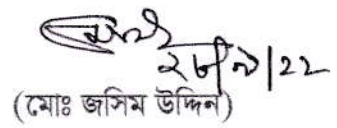 ২৮/৯/২২
(মোঃ জসিম উদ্দিন)